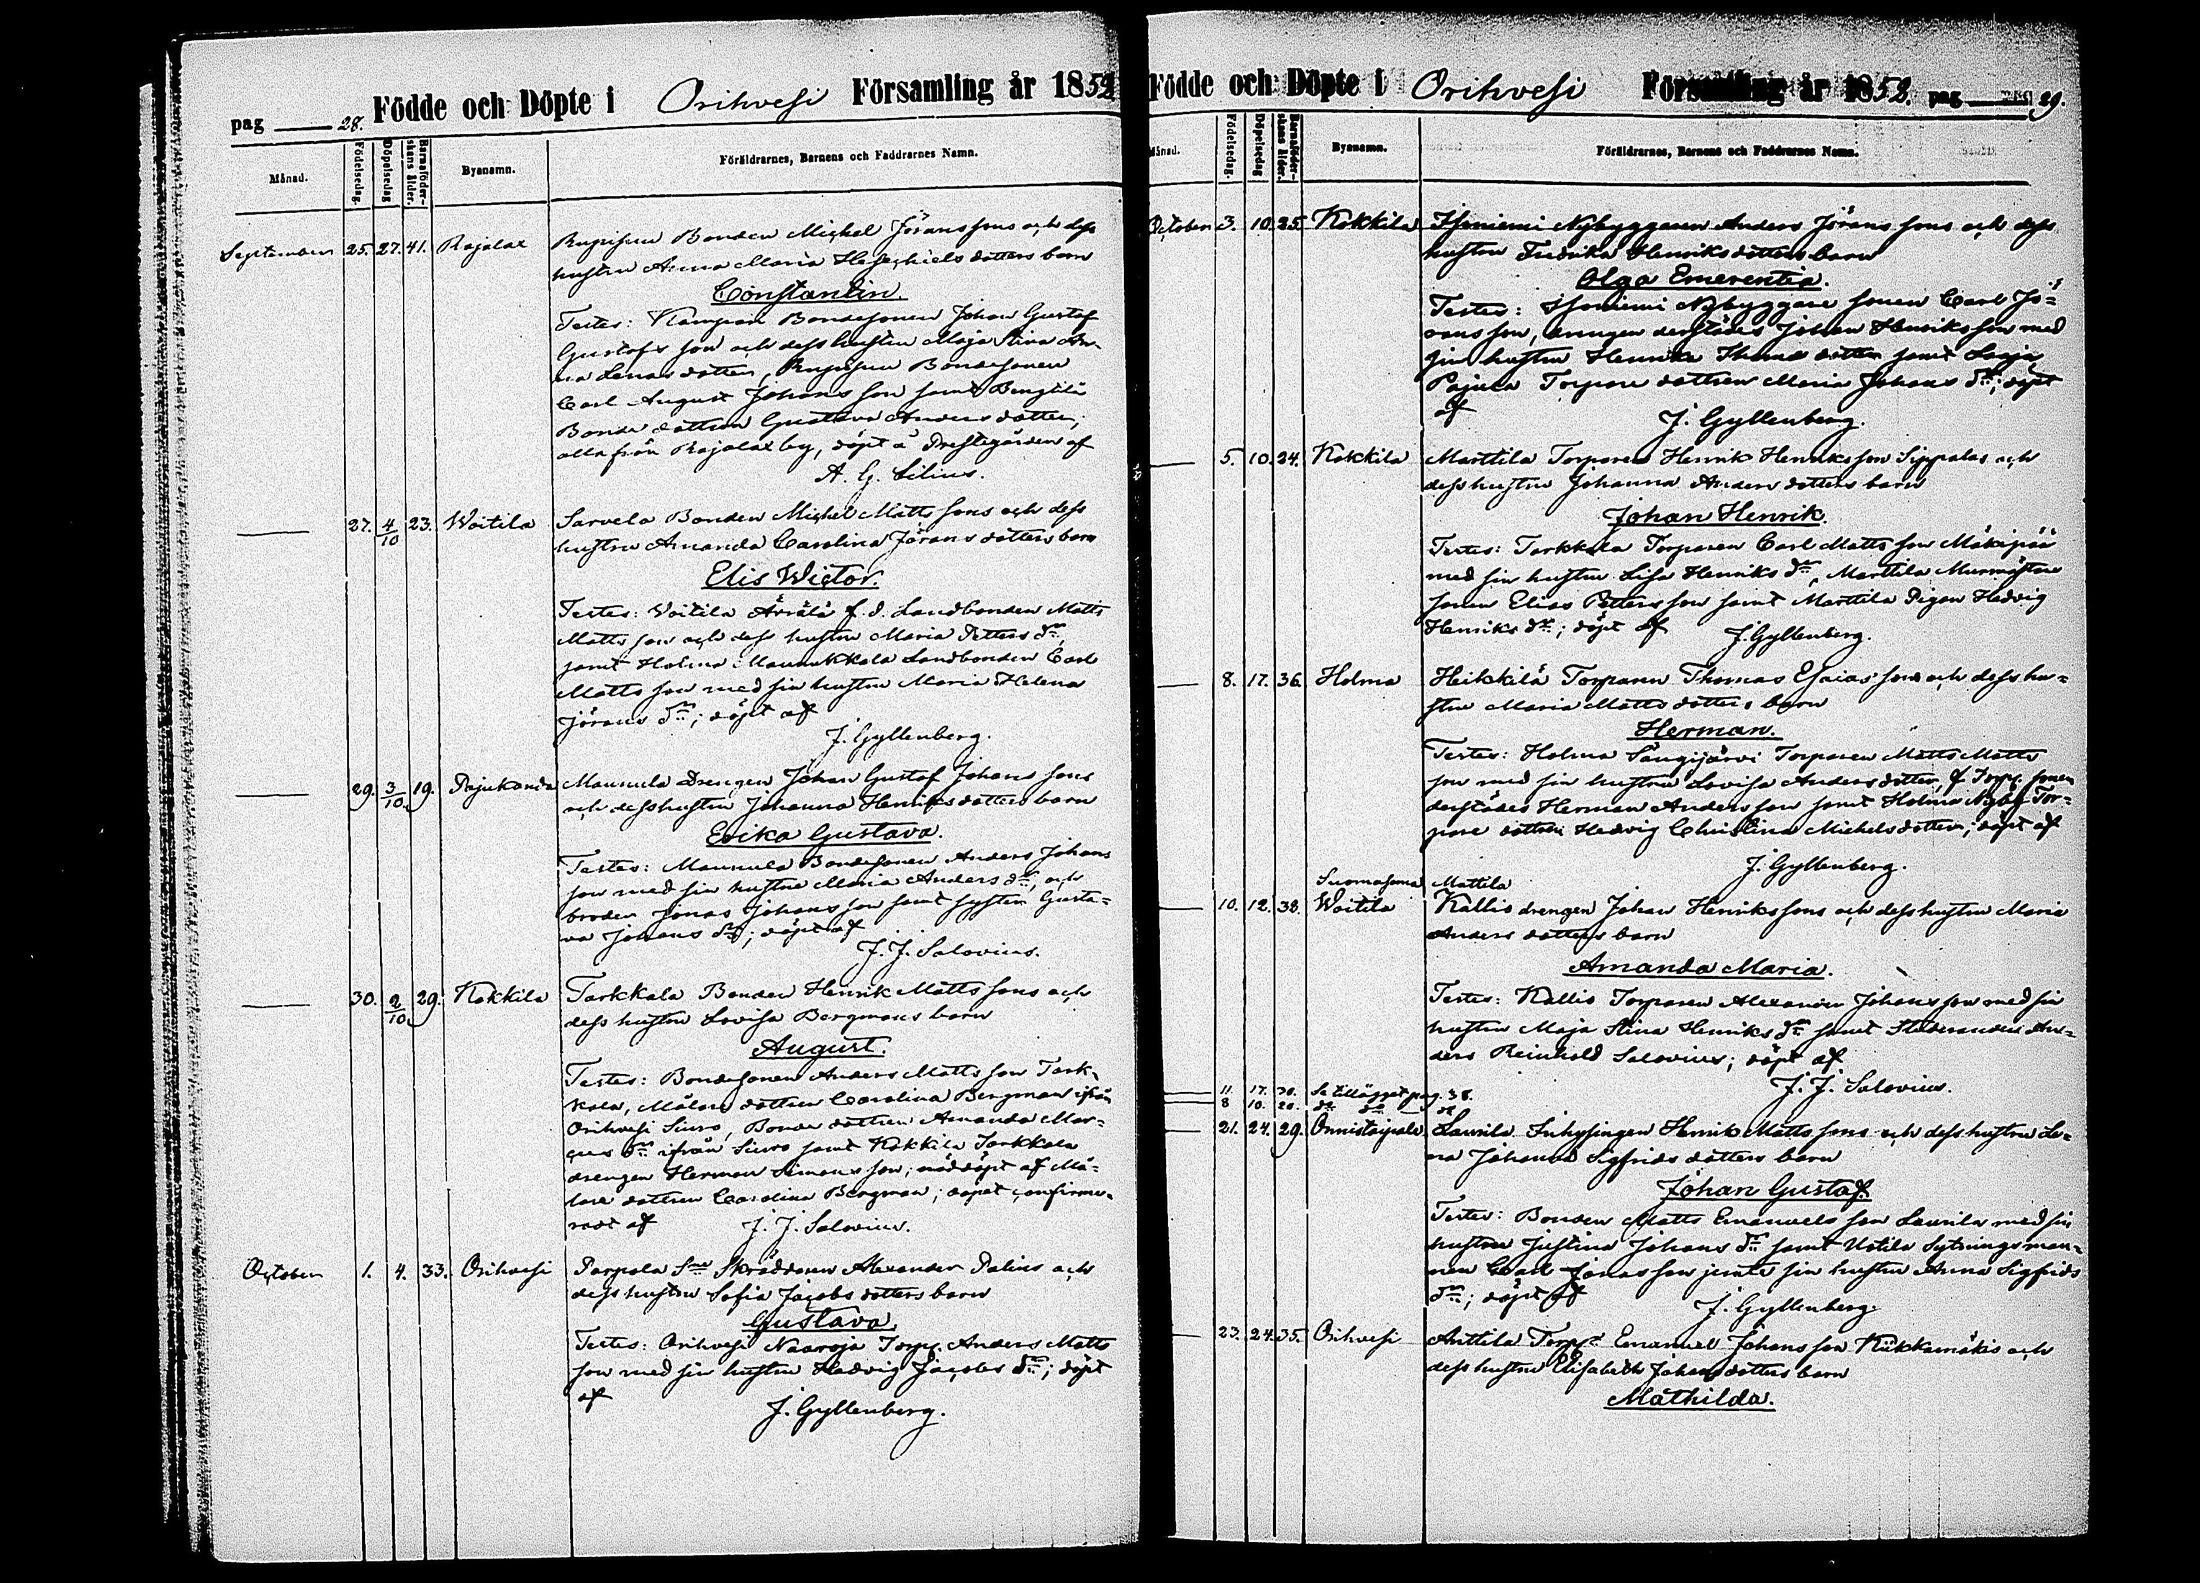 pag 28. Födde och Döpte i Orihvesi Församling år 1852
Månad. Födelsedag. Döpelsedag Barnaföderskans ålder. Byanamn. Föräldrarnes, Barnens och Faddrarnes Namn.
September 25. 27. 41. Rajalax Bonden Michel Jöranssons och dess
hustru Anna Maria Hesechiels dotters barn
Constantin.
Testes: Bondesonen Johan Gustaf
Gustafs son och dess hustru Maja Stina
dotter, Bondesonen
Carl August Johans son samt Bengtilä
Bonde dottren Gustava Anders dotter;
alla från Rajalax by, döpt å Prestegården af
A. G. Cilius.
27. 4/10 23. Woitila Sarvela Bonden Michel Matts sons och dess
hustru Amanda Carolina Jörans dotters barn
Elis Wictor.
Testes: Voitila Ävrälä f. d. Landbonden Matts
Matts son och dess hustru Maria Petters dr,
samt Holma Maunukkala Landbonden Carl
Matts son med sin hustru Maria Helena
Jörans dr; döpt af
J. Gyllenberg.
29. 3/10 19. Pajukanda Mannula Drengen Johan Gustaf Johans sons
och dess hustru Johanna Henriks dotters barn
Erika Gustava.
Testes: Mannula Bondesonen Anders Johans
son med sin hustru Maria Anders dr, och
broder Jonas Johans son samt syster Gusta=
va Johans dr; döpt af
J. J. Salovius.
30. 2/10 29. Kokkila Tarkkala Bonden Henrik Matts sons och
dess hustru Lovisa Bergmans barn
August.
Testes: Bondesonen Anders Matts son Tark-
kala, Målare dottren Carolina Bergman ifrån
Orihvesi Siuro, Bonde dottren Amanda Mar=
cus dr ifrån Siuro samt Kokkila Tarkkala
drengen Herman Simons son; nöddöpt af Må=
lare dottren Carolina Bergman; döpet confirme-
radt af J. J. Salovius.
October 1. 4. 33. Orihvesi Parpola Sne Skräddaren Alexander Palius och
dess hustru Sofia Jacobs dotters barn
Gustava.
Testes: Orihvesi Naaroja Torp. Anders Matts
son med sin hustru Hedvig Jacobs dr; döpt
af
J. Gyllenberg.
Födde och Döpte i Orihvesi Församling år 1852. pag 29.
Månad. Födelsedag. Döpelsedag Barnaföderskans ålder. Byanamn. Föräldrarnes, Barnens och Faddrarnes Namn.
October 3. 10. 25. Kokkila Isoniemi Nybyggaren Anders Jörans sons och dess
hustru Fredrika Henriks dotters barn
Olga Emerentia.
Testes: Isoniemi Nybyggare sonen Carl Jö=
rans son, drengen derstädes Johan Henriks son med
sin hustru Henrika dotter samt
Pajula Torpare dottren Maria Johans dr; döpt
af
J. Gyllenberg.
5. 10. 24. Kokkila Marttila Torparen Henrik Henriks son Sippalas och
dess hustru Johanna Anders dotters barn
Johan Henrik.
Testes: Tarkkala Torparen Carl Matts son Mäkipää
med sin hustru Lisa Henriks dr, Marttila Murmästare
sonen Elias Petters son samt Marttila Pigan Hedvig
Henriks dr; döpt af J. Gyllenberg.
8. 17. 36. Holma Heikkilä Torparen Thomas Esaias sons och dess hu=
stru Maria Matts dotters barn
Herman.
Testes: Holma Sängijärvi Torparen Matts Matts
son med sin hustru Lovisa Anders dotter, f. Torp. sonen
derstädes Herman Anders son samt Holma Nybÿ Tor=
pare dottren Hedvig Christina Michels dotter; döpt af
J. Gyllenberg.
Suomasema Mattila
10. 12. 38. Woitila Kallio drengen Johan Henriks sons och dess hustru Maria
Anders dotters barn
Amanda Maria.
Testes: Kallio Torparen Alexander Johans son med sin
hustru Maja Stina Henriks dr samt Studeranden An=
ders Reinhold Salovius; döpt af
J. J. Salovius.
11 17. 30. Se tillägget pag. 38.
8 10. 20. do do do
21. 24. 29. Onnistaipale Laurila Inhysingen Henrik Matts sons och dess hustru Le=
na Johanna Sigfrids dotters barn
Johan Gustaf.
Testes: Bonden Matts Emanuels son Laurila med sin
hustru Justina Johans dr samt Uotila Sytningsman=
nen Carl Jonas son jemte sin hustru Anna Sigfrids
dr; döpt af J. Gyllenberg.
23. 24. 35. Orihvesi Anttila Torp. Emanuel Johans son Kukkamäkis och
dess hustru Elisabeth Johans dotters barn
Mathilda.